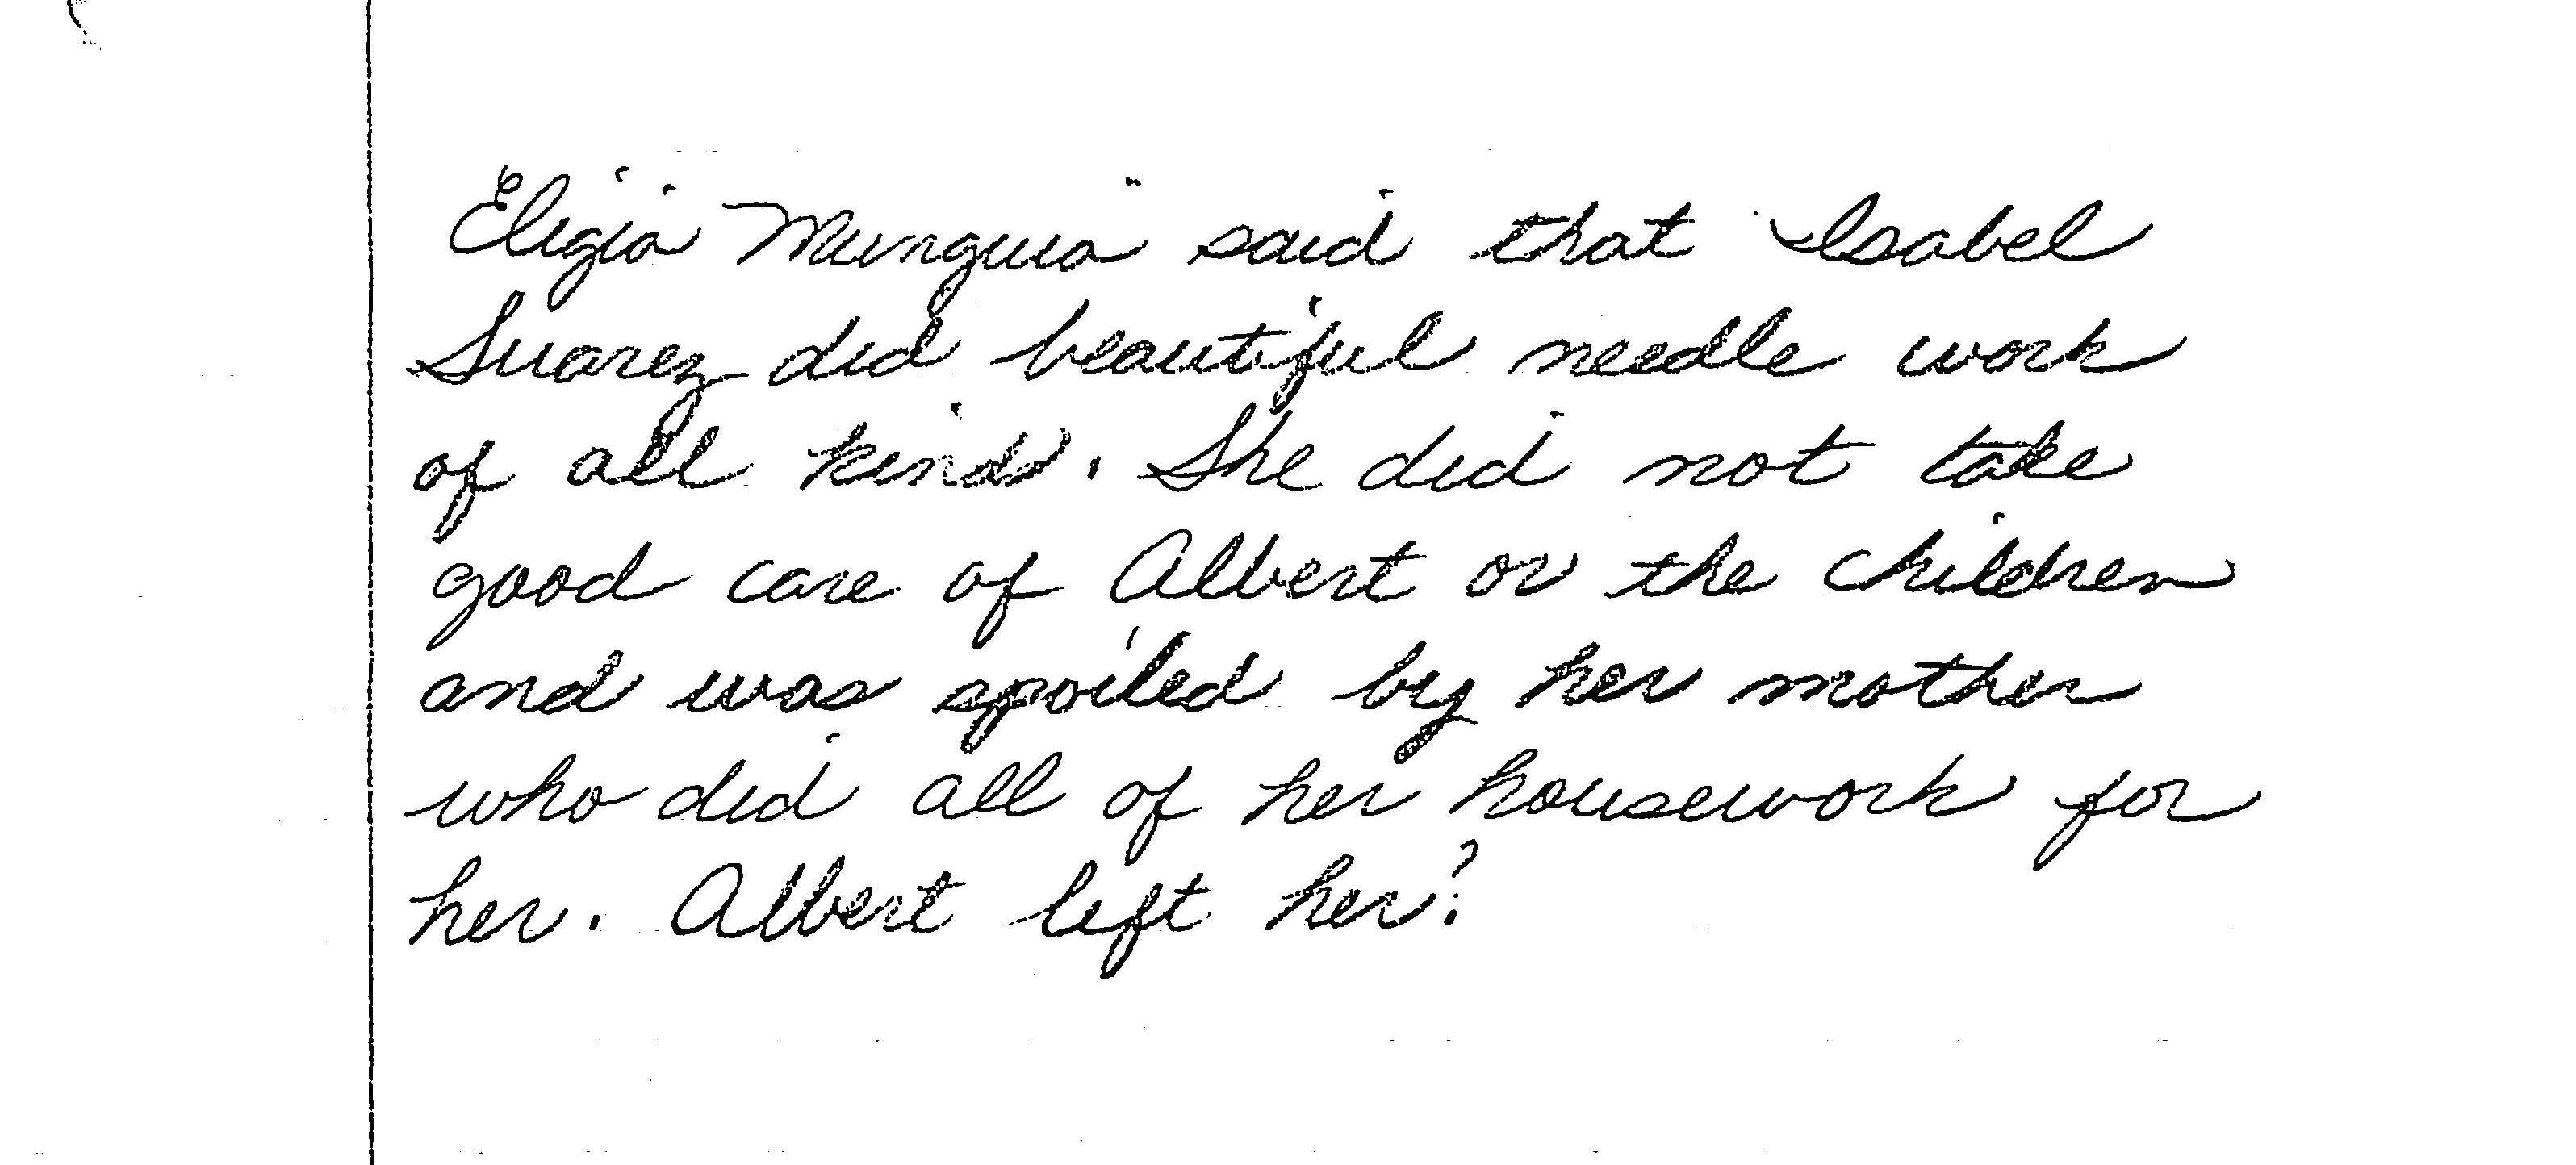 Eligia Munguia said that Isabel
Suarez did beautiful needle work
of all kinds. She did not take
good care of Albert or the children
and was spoiled by her mother
who did all of her housework for
her. Albert left her?